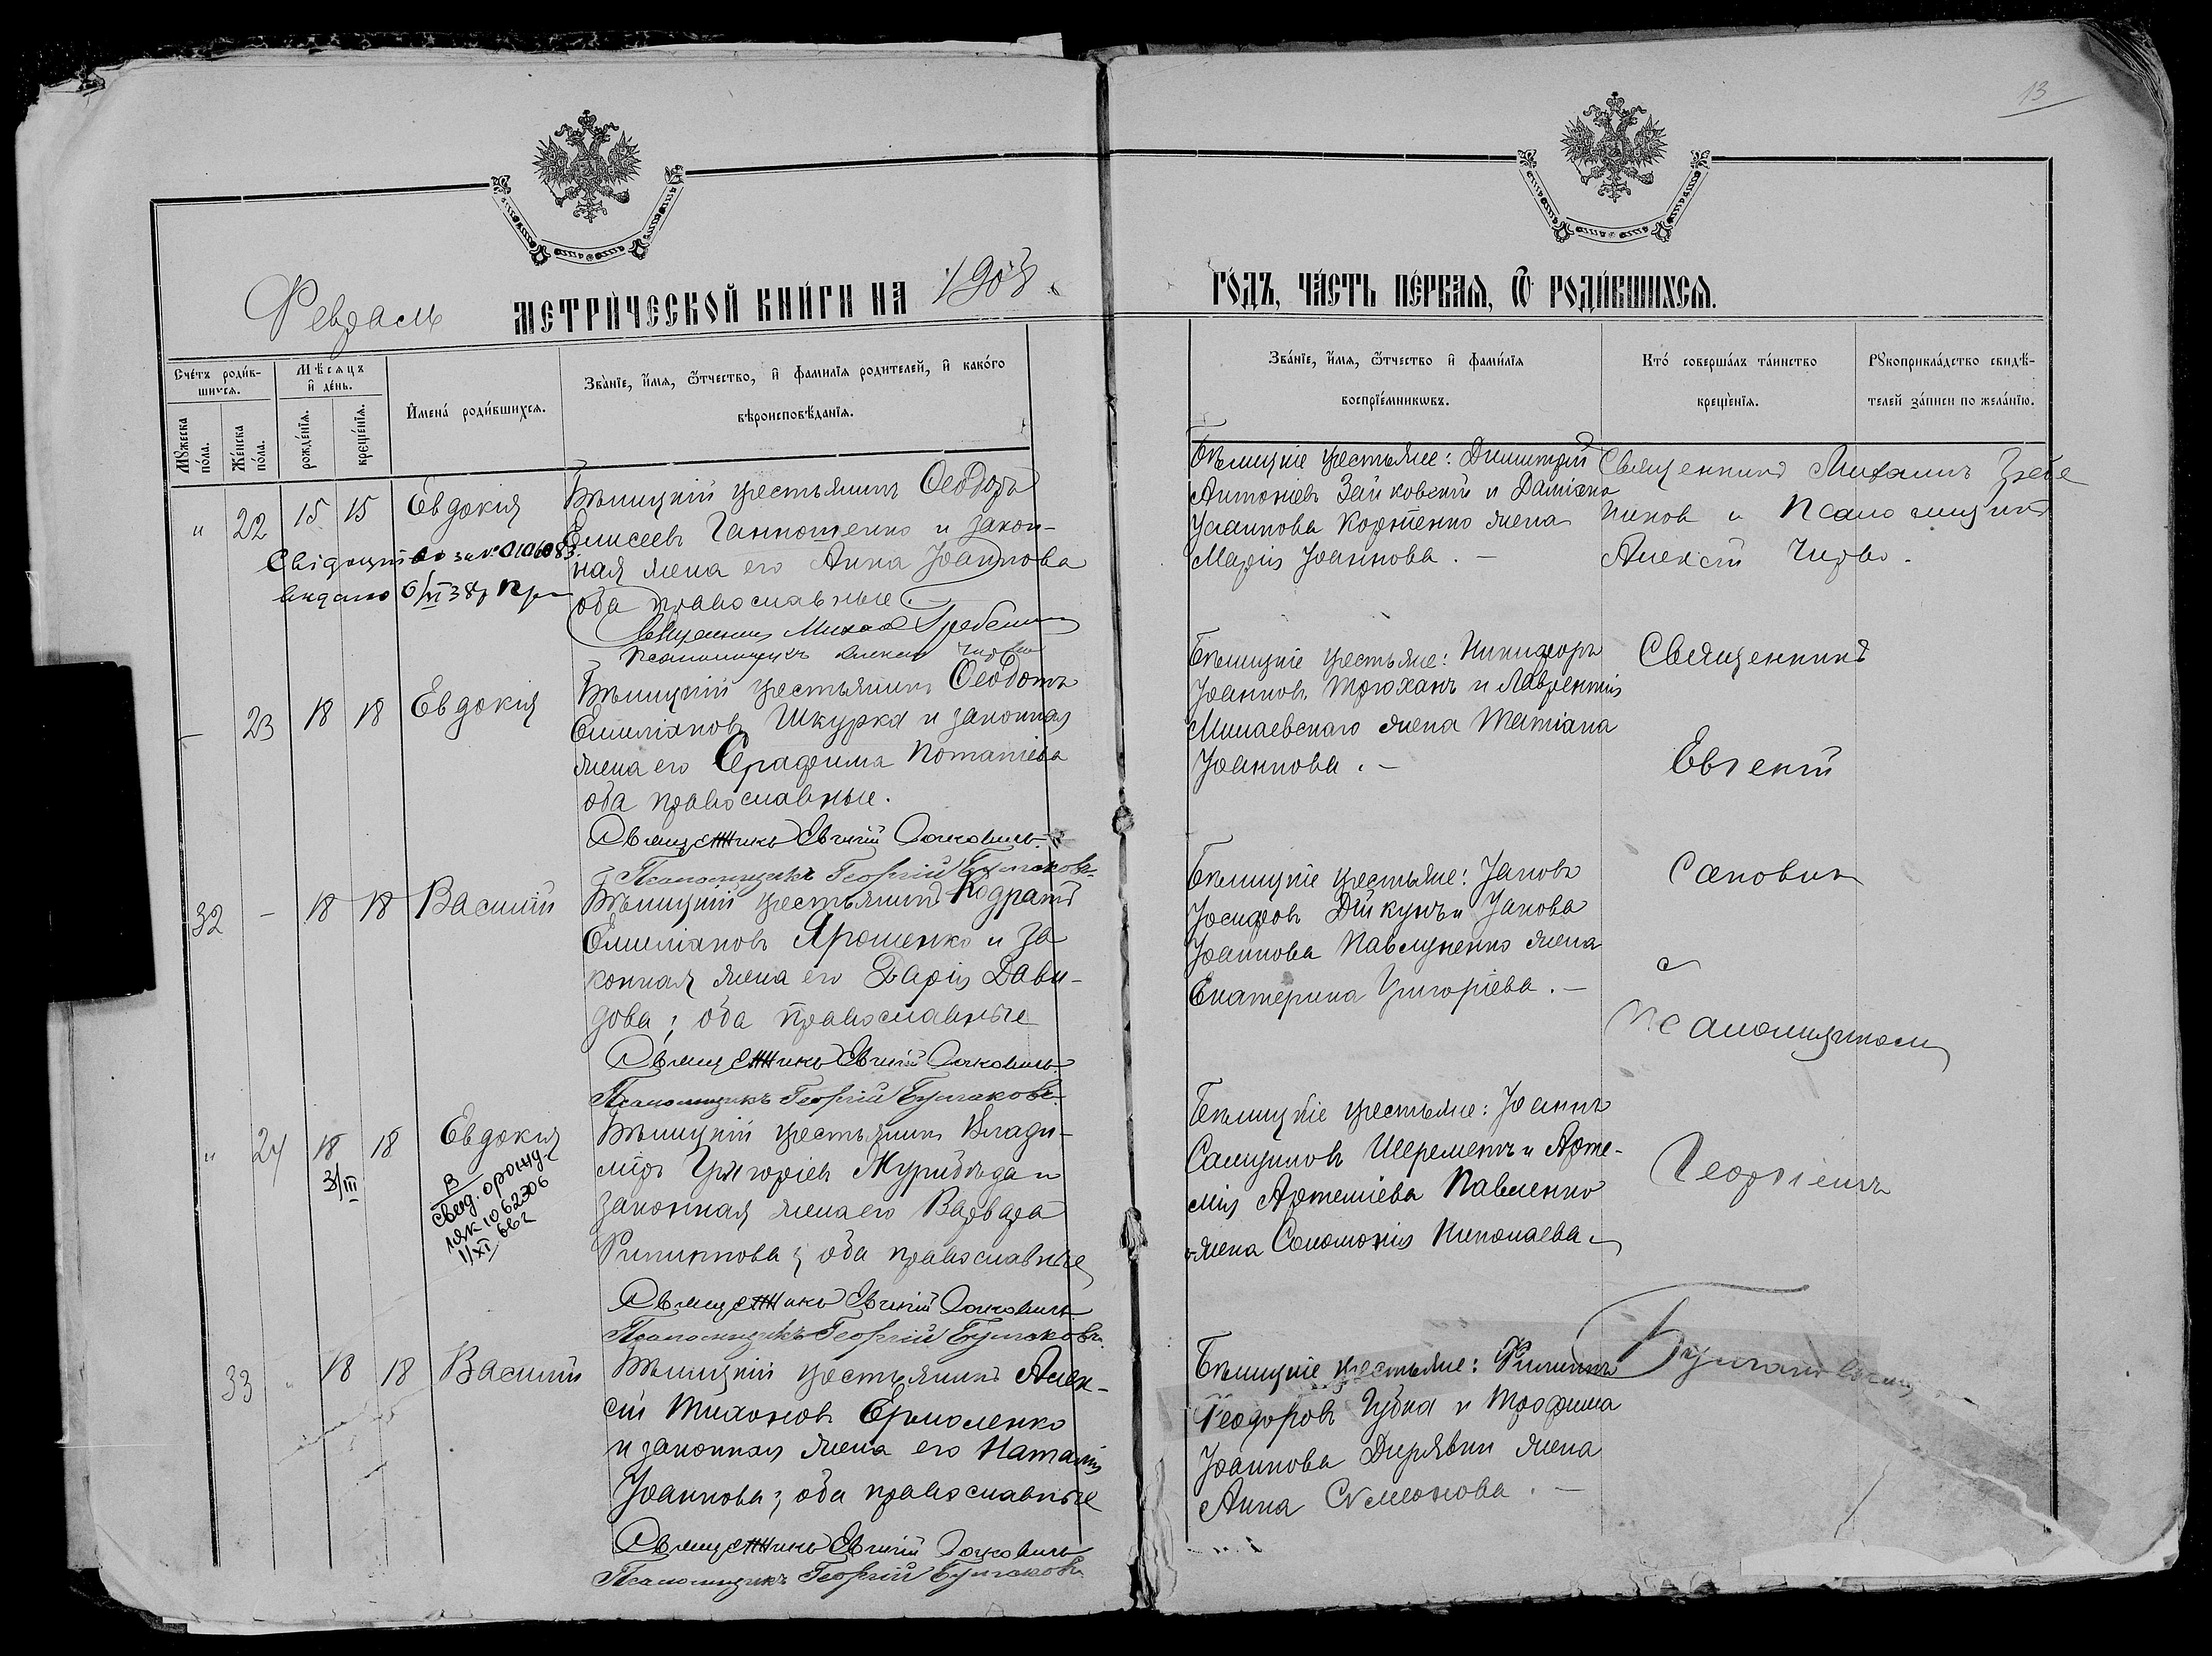 13
Февраль МЕТРИЧЕСКОЙ КНИГИ НА 1903 ГОДЪ, ЧАСТЬ ПЕРВАЯ, Ѿ РОДИВШИХСЯ.
Счетъ родив-
шихся.
Мѣсяцъ
и день.
Мужеска
пола.
Женска
пола.
рожденія.
крещенія.
Имена родившихся.
Званіе, имя, ѿтчество, и фамилія родителей, и какого
вѣроисповѣданія.
Званіе, имя, ѿтчество и фамилія
воспріемниковъ.
Кто совершалъ таинство
крещенія.
Рукоприкладство свидѣ-
телей записи по желанію.
" 22 15 15 Евдокія
Свідоцтво за №
видано 6/VI 38р
крестьянинъ Ѳеодоръ
Елисеевъ и закон-
ная жена его Анна Іоаннова
оба православные.
Священникъ Михаил Гребе
Псаломщикъ Алексій
крестьяне: Димитрій
Антоніевъ Зайковскій и Даміана
Іоаннова жена
Марія Іоаннова. –
Священникъ Михаилъ Гребе
никовъ и Псаломщикъ
Алексій
– 23 18 18 Евдокія
крестьянинъ Ѳеодотъ
Емиліановъ Шкурка и законная
жена его Серафима Потапіева
оба православные.
Священникъ Евгеній Саковичъ
Псаломщикъ Георгій Булгаковъ
крестьяне: Никифоръ
Іоанновъ Трюханъ и Лаврентія
Минаевскаго жена Татіана
Іоаннова. –
Священникъ
Евгеній
32 – 18 18 Василій
крестьянинъ Кодратъ
Емиліановъ Ярошенко и за
конная жена его Дарія Дави-
дова; оба православные
Священникъ Евгеній Саковичъ
Псаломщикъ Георгій Булгаковъ
крестьяне: Іаковъ
Іосифовъ Дікунъ и Іакова
Іоаннова Павлученко жена
Екатерина Григоріева. –
Саковичъ
с
Псаломщикомъ
" 24 18 18 Евдокія
3/III
В
свид. о рожд.
1062306
1/XI 66г
крестьянинъ Влади-
міръ Григоріевъ Журибѣда и
законная жена его Варвара
Филиппова; оба православные
Священникъ Евгеній Саковичъ
Псаломщикъ Георгій Булгаковъ
крестьяне: Іоаннъ
Шереметъ и Арте-
мія Артеміева Павленко
жена Соломонія Николаева
Георгіемъ
33 " 18 18 Василій
крестьянинъ Алек-
сій Тихоновъ Ермоленко
и законная жена его Наталія
Іоаннова; оба православные
Священникъ Евгеній Саковичъ
Псаломщикъ Георгій Булгаковъ
крестьяне: Филиппъ
Ѳеодоровъ Губка и Трофима
Іоаннова жена
Анна Симеонова. –
Булгаковымъ